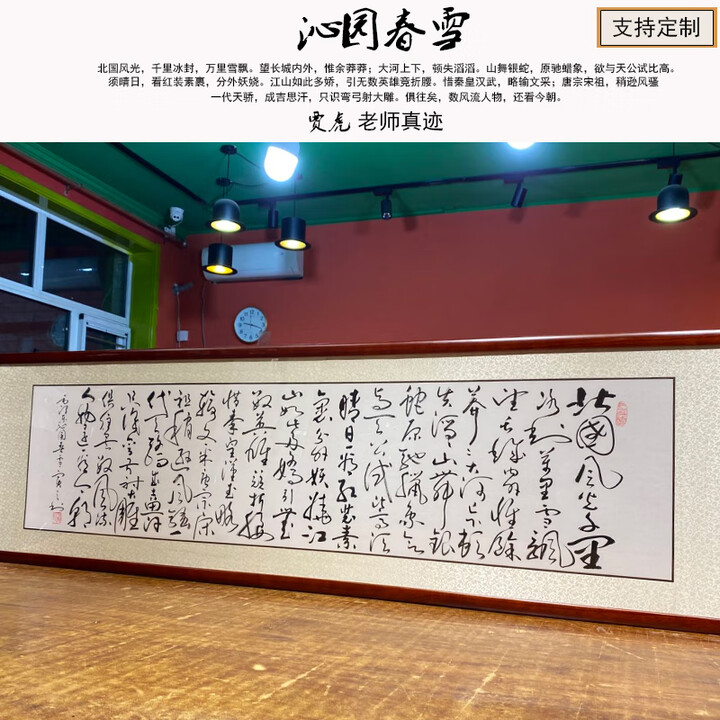 沁园春雪
支持定制
北国风光，千里冰封，万里雪飘。望长城内外，惟余莽莽；大河上下，顿失滔滔。山舞银蛇，原驰蜡象，欲与天公试比高。
须晴日，看红装素裹，分外妖娆。江山如此多娇，引无数英雄竞折腰。惜秦皇汉武，略输文采；唐宗宋祖，稍逊风骚
一代天骄，成吉思汗，只识弯弓射大雕。俱往矣，数风流人物，还看今朝。
贾虎 老师真迹
北國风光千里
冰封万里雪飘
望长城内外惟馀
莽々大河上下顿
失滔々山舞银
蛇原驰蜡象欲
与天公试比高须
晴日看红装素
裹分外妖娆江
山如此多娇引无
数英雄竞折腰
惜秦皇汉武略
输文采唐宗宋
祖稍逊风骚一
代天骄成吉思汗
只识弯弓射大雕
俱往矣数风流
人物还看今朝